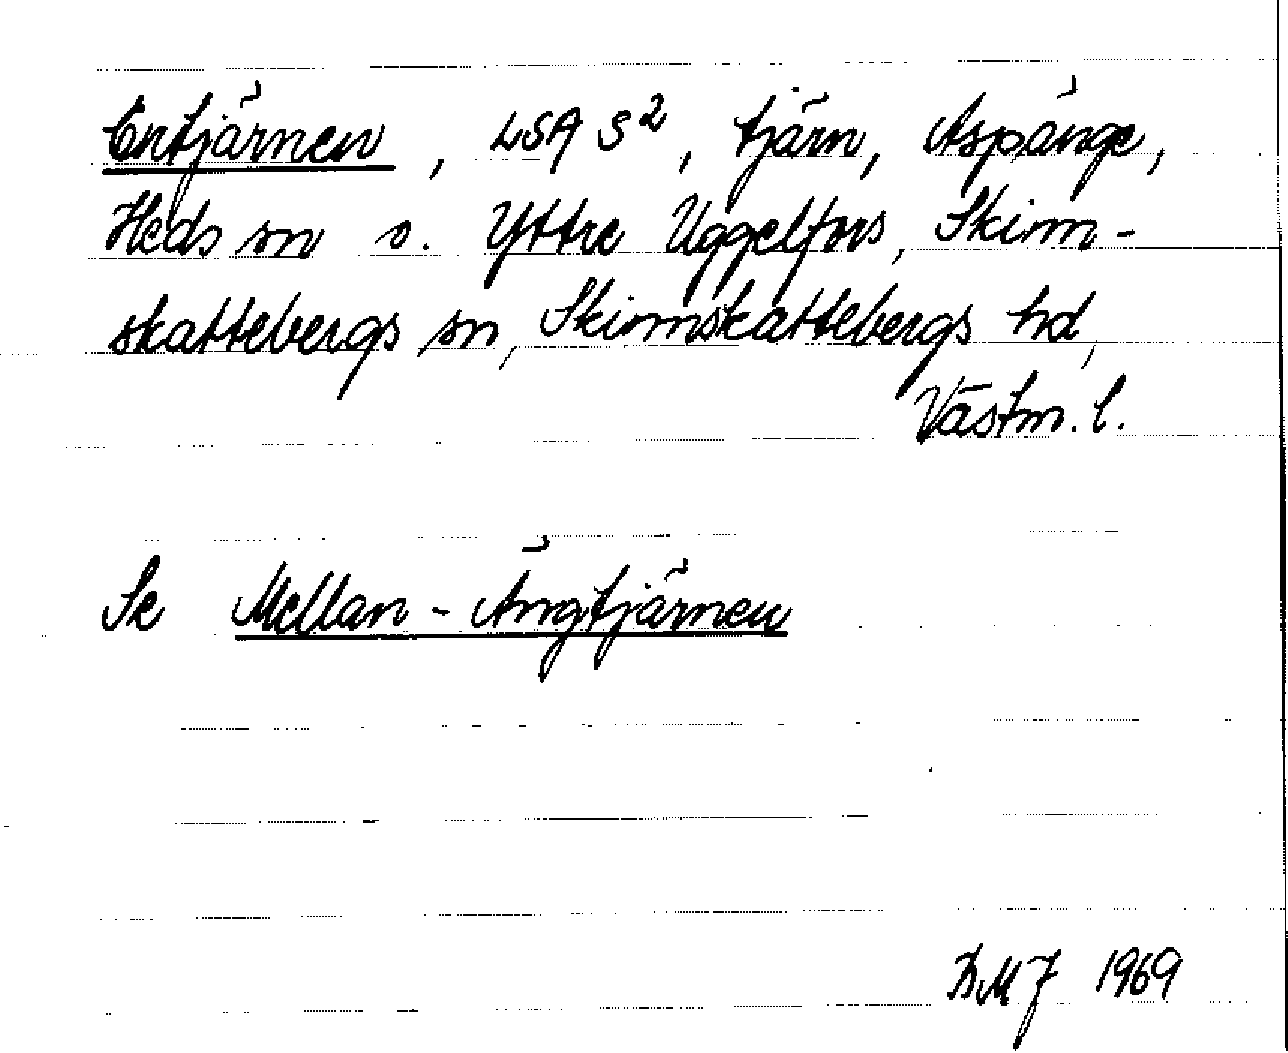 Entjärnen, LSA S², tjärn, Aspänge,
Heds sn o. Yttre Uggelfors, Skinn-
skattebergs sn, Skinnskattebergs hd,
Västm. l.
Se Mellan-Ängtjärnen
KMJ 1969